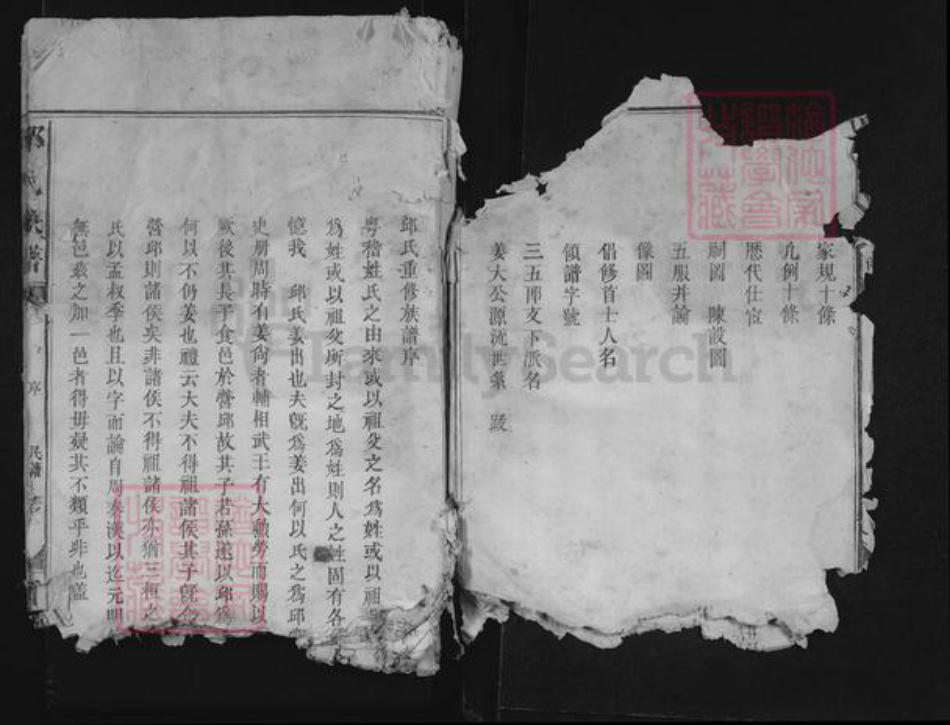 家規十條
凡例十條
歷代仕宦
祠圖 陳設圖
五服并論
像圖
倡修首士人名
領譜字號
三五郎文下派名
姜太公源流世彙 跋
邱氏重修族譜序
粵稽姓氏之由來或以祖父之名爲姓或以祖
爲姓或以祖父所封之地爲姓則人之姓固有各
憶我 邱氏姜出也夫旣爲姜出何以氏之爲邱
史册周時有姜尙者輔相武王有大勳勞而賜以
厥後其長子食邑於營邱故其子若孫遂以邱爲
何以不仍姜也禮云大夫不得祖諸侯其子旣食
營邱則諸侯矣非諸侯不得祖諸侯亦猶三桓之
氏以孟叔季也且以字而論自周秦漢以迄元明
無邑茲之加一邑者得毋疑其不類乎非也蓋
氏族譜
序
FamilySearch